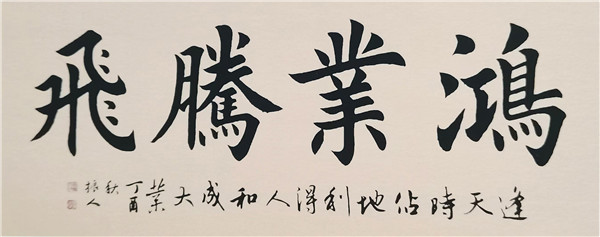 鴻業騰飛
逢天時佔地利得人和成大業
丁酉
秋
振人